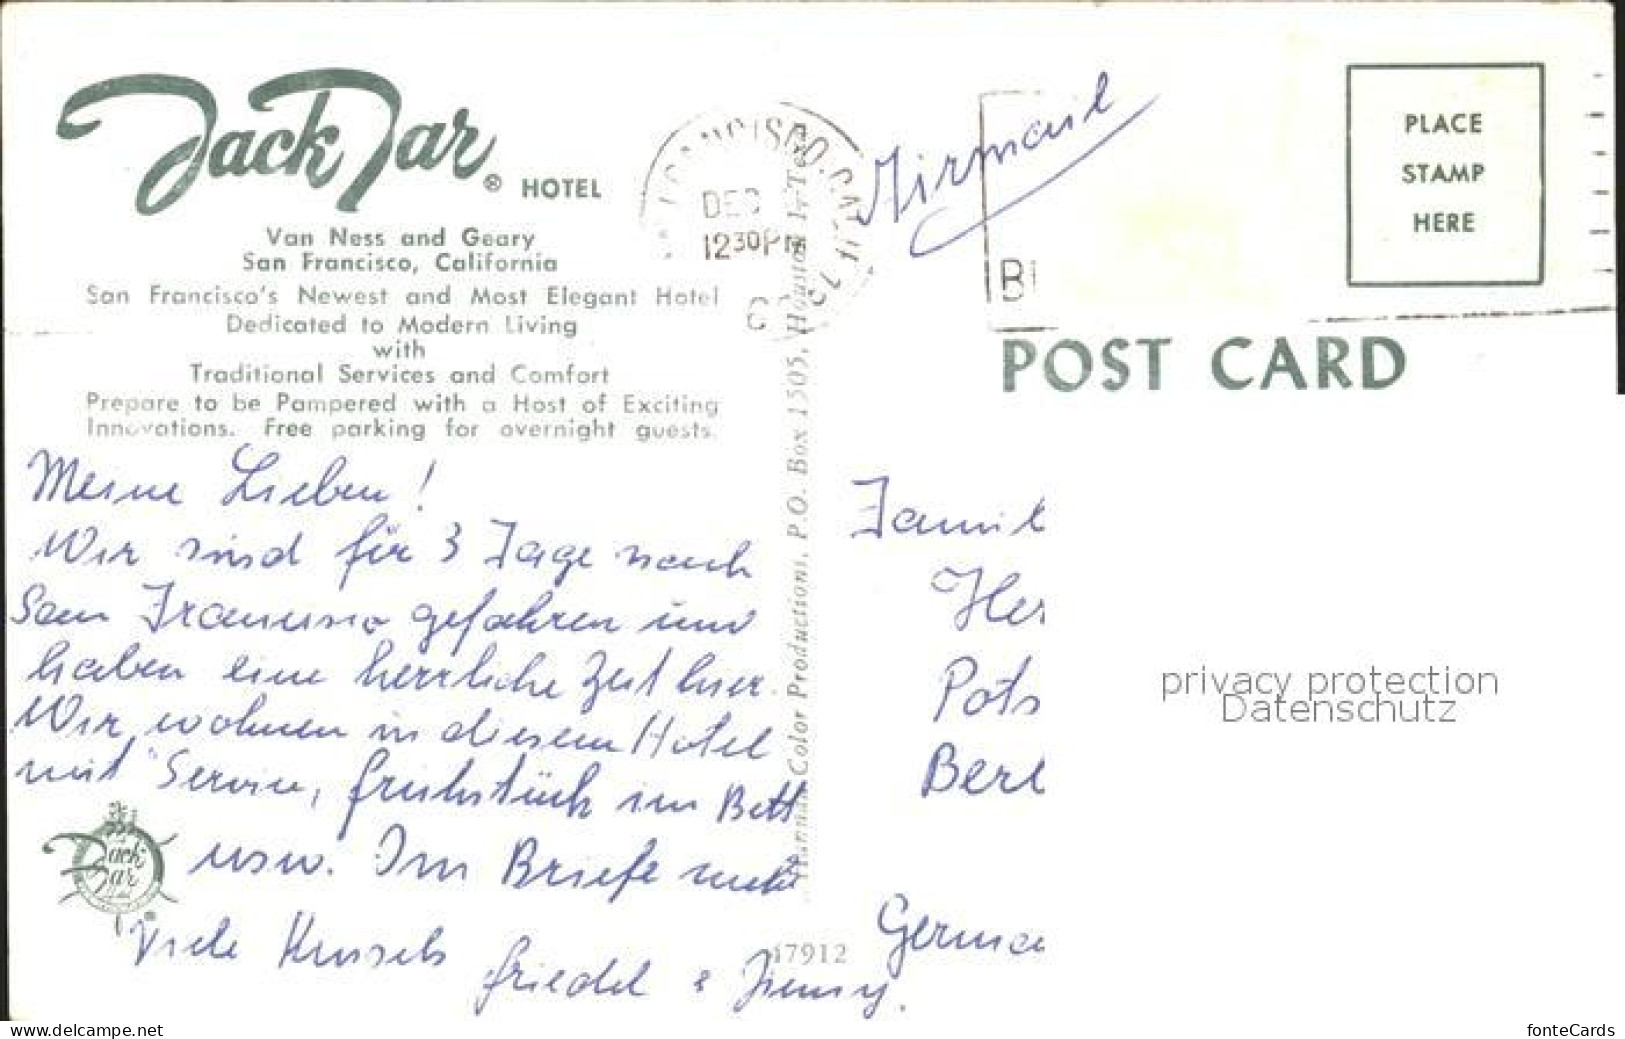 Jack Tar® HOTEL
Van Ness and Geary
San Francisco, California
San Francisco's Newest and Most Elegant Hotel
Dedicated to Modern Living
with
Traditional Services and Comfort
Prepare to be Pampered with a Host of Exciting
Innovations. Free parking for overnight guests.
Meine Lieben!
Wir sind für 3 Tage nach
San Francisco gefahren und
haben eine herrliche Zeit hier.
Wir wohnen in diesem Hotel
mit Service, Frühstück im Bett
usw. Im Briefe mehr
Viele Kussels
Friedel &
Jack Tar
FRANCISCO, CALIF
DEC
12 30 PM
Color Productions, P.O. Box 1505, Houston 1, Tex.
17912
Airmail
PLACE
STAMP
HERE
POST CARD
Famil
Her
Pots
Berl
Germa
privacy protection
Datenschutz
www.delcampe.net
fonteCards